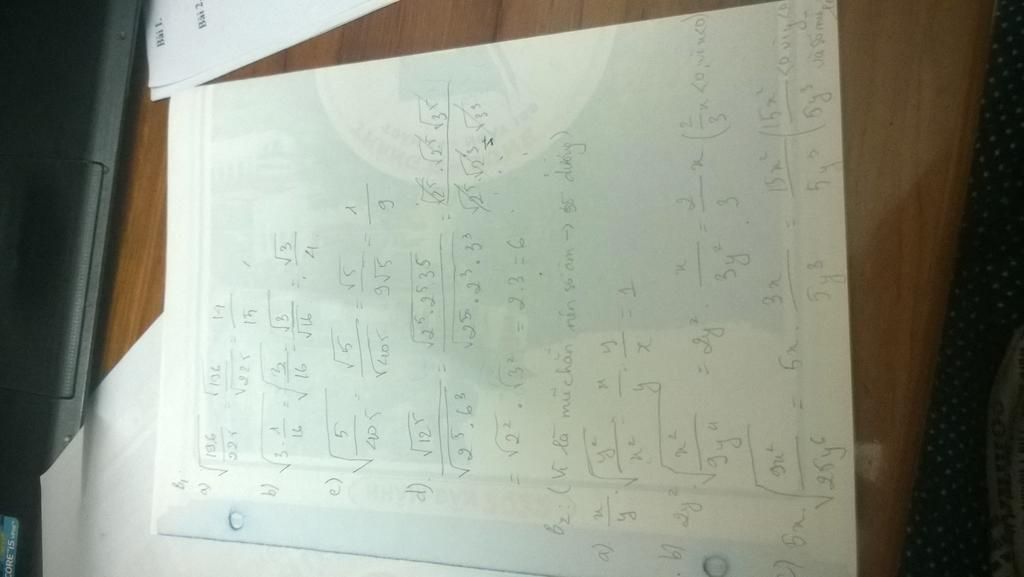 Bài 1.
Bài 2.
B1
a) √(196/225) = √196/√225 = 14/15
b) √(3·1/16) = √(3/16) = √3/√16 = √3/4
c) √(5/405) = √5/√405 = √5/9√5 = 1/9
d) √12⁵/√(2⁵·6³) = √(2⁵·2⁵3⁵)/√(2⁵·2³·3³) = √2⁵·√2⁵√3⁵/√2⁵√2³·√3³
= √2²·√3² = 2.3 = 6
B2: (Vì là mũ chẵn nên số âm → số dương)
a) x/y·√(y²/x²) = x/y·y/x = 1
b) 2y²√(x²/9y⁴) = 2y²·x/3y² = 2/3 x (2/3 x < 0, vì x < 0)
c) 5x·√(9x²/25y⁶) = 5x·3x/5y³ = 15x²/5y³
CORE i5